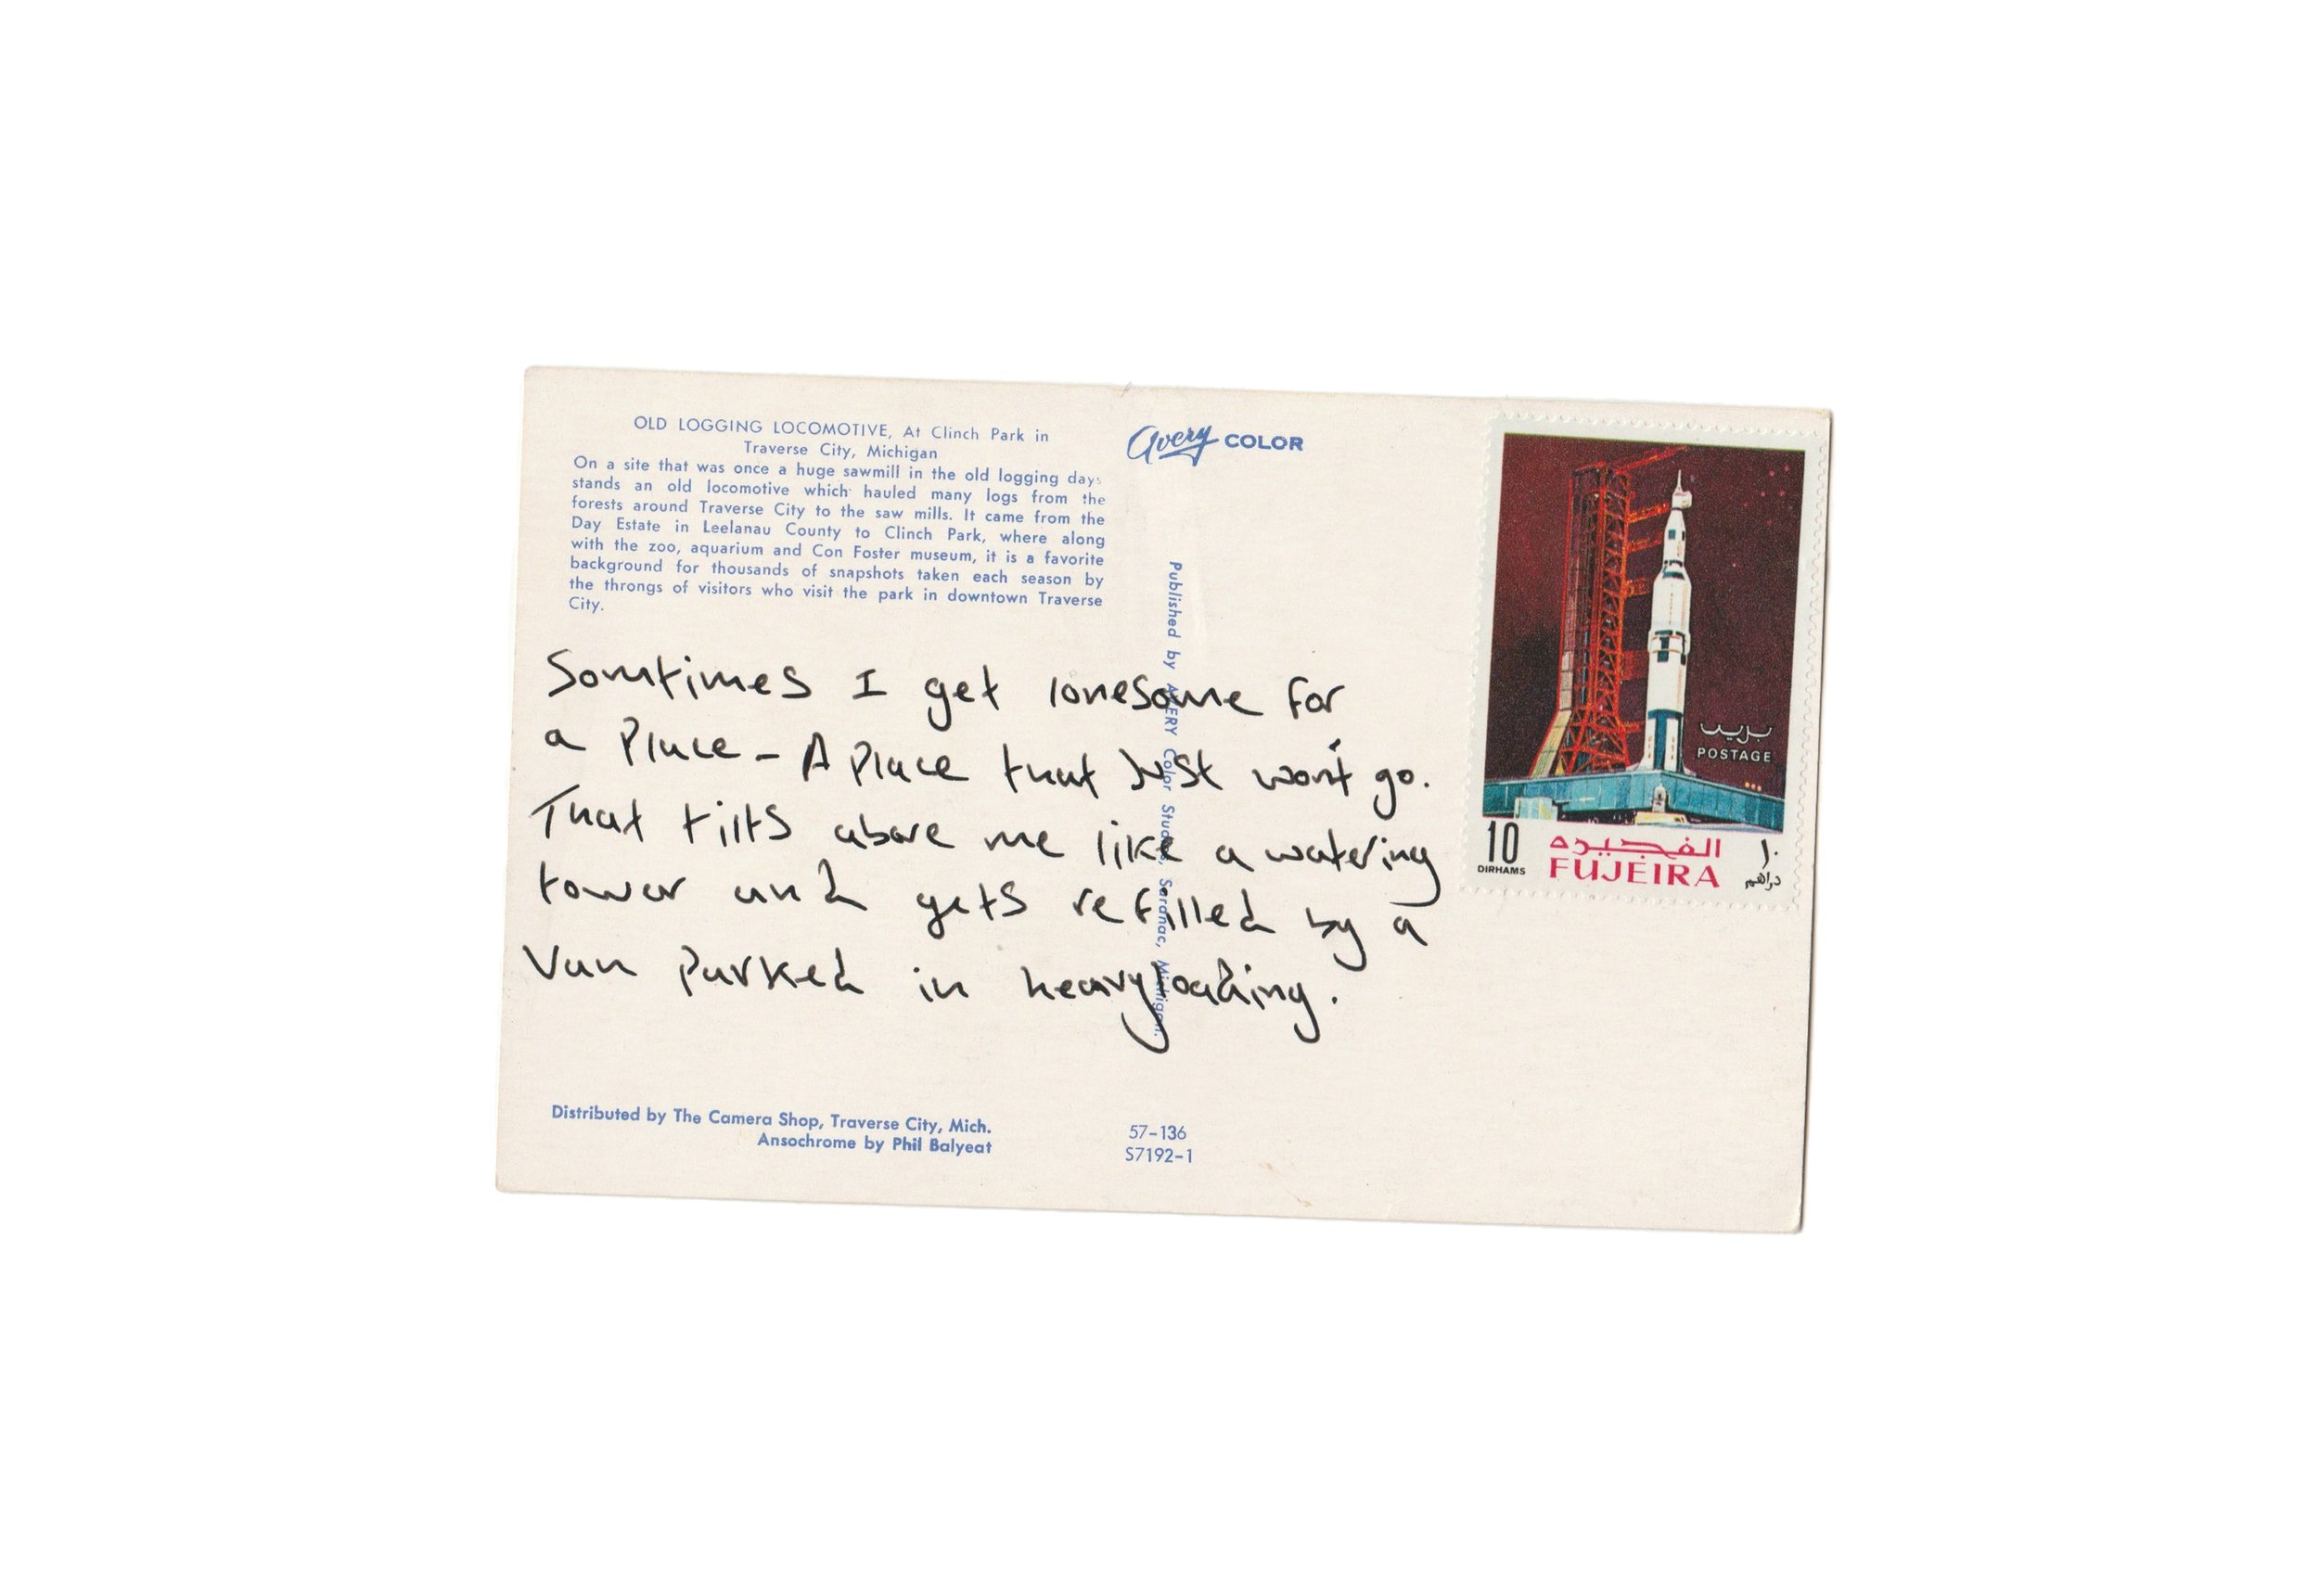 OLD LOGGING LOCOMOTIVE, At Clinch Park in
Traverse City, Michigan
On a site that was once a huge sawmill in the old logging days
stands an old locomotive which hauled many logs from the
forests around Traverse City to the saw mills. It came from the
Day Estate in Leelanau County to Clinch Park, where along
with the zoo, aquarium and Con Foster museum, it is a favorite
background for thousands of snapshots taken each season by
the throngs of visitors who visit the park in downtown Traverse
City.
Avery COLOR
Published by AVERY Color Studios, Saranac, Michigan.
Somtimes I get lonesome for
a Place - A Place that Just won't go.
That tilts above me like a watering
tower and gets refilled by a
Van Parked in heavy loading.
بريد
POSTAGE
10 الفجيرة ١٠
DIRHAMS FUJEIRA دراهم
Distributed by The Camera Shop, Traverse City, Mich.
Ansochrome by Phil Balyeat
57-136
S7192-1